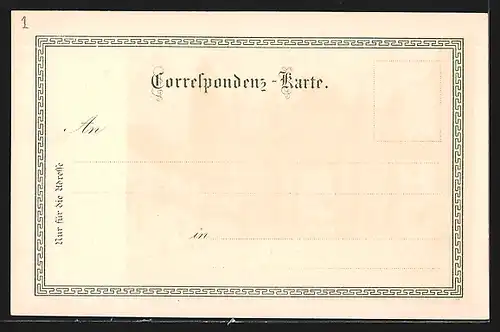 1
Correspondenz-Karte.
An
Nur für die Adresse
in